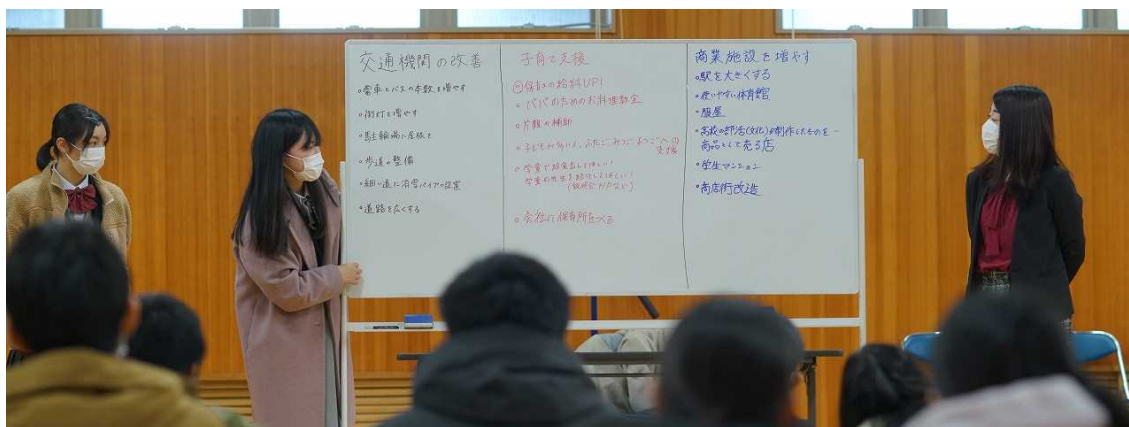 交通機関の改善
。電車とバスの本数を増やす
。街灯を増やす
。駐輪場に屋根を
。歩道の整備
。細い道に消雪パイプの設置
。道路を広くする
子育て支援
保育士の給料UP!
。パパのためのお料理教室
。片親の補助
。子どもが多い人、ふたごみつごよつごへの
支援
。学童で
学童の先生を
。会社に保育所をつくる
商業施設を増やす
。駅を大きくする
。使いやすい体育館
。服屋
。高校の部活(文化)が制作したものを
商品として売る店
。学生マンション
。商店街改造